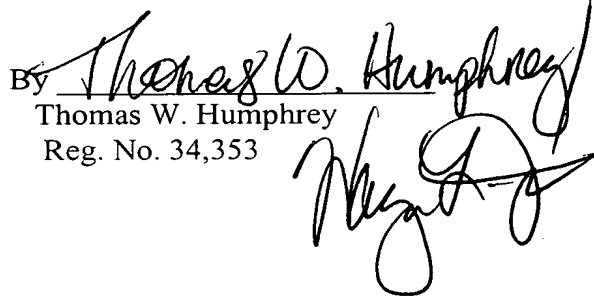 By Thomas W. Humphrey
Thomas W. Humphrey
Reg. No. 34,353